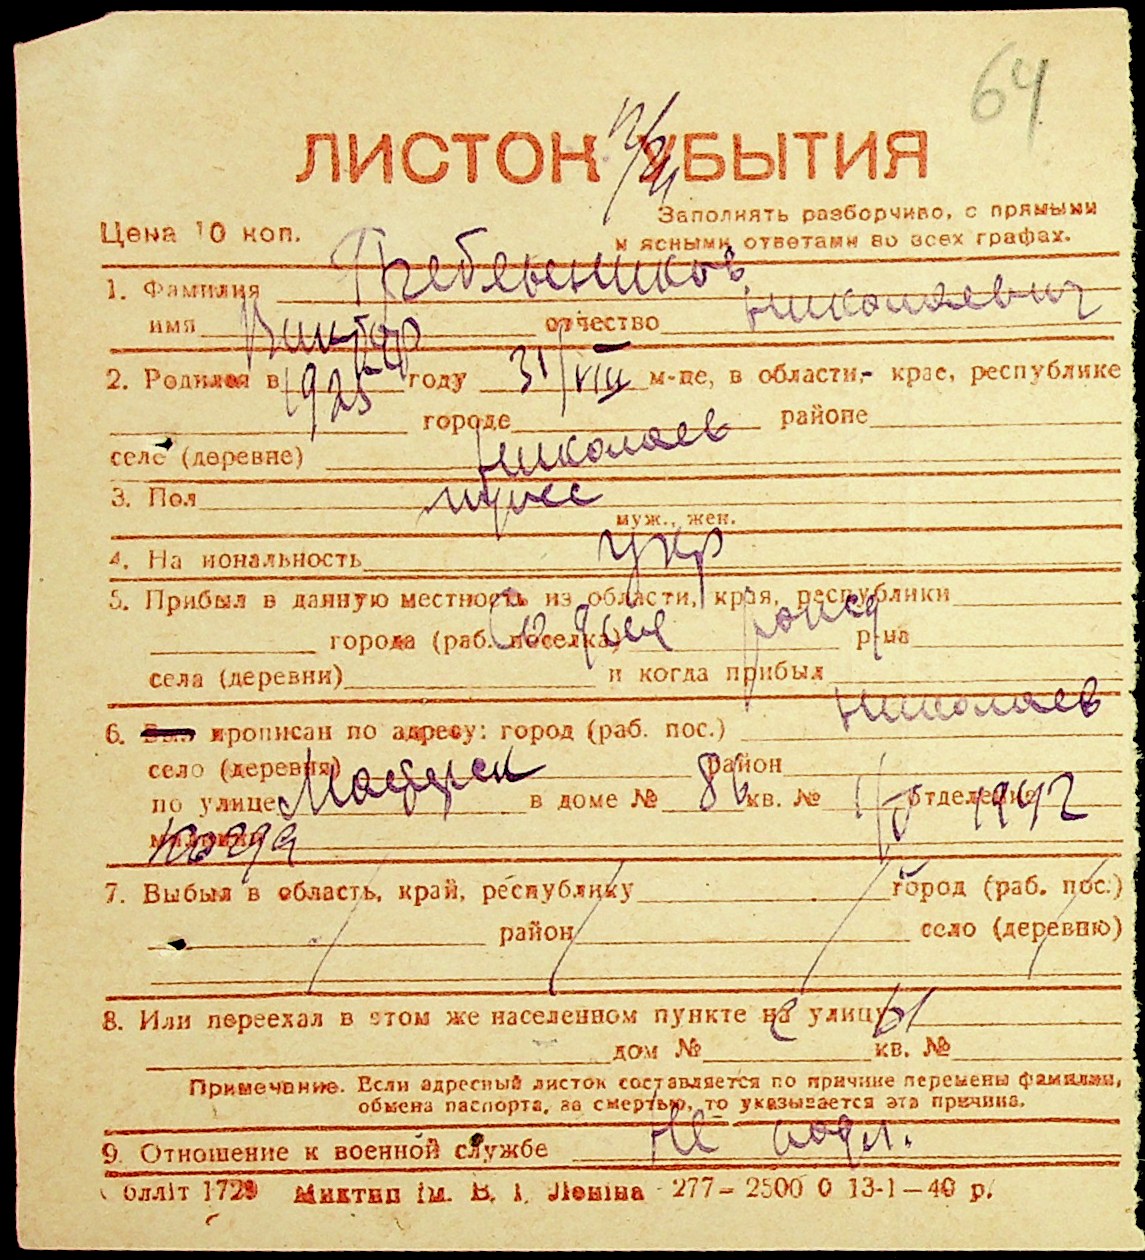 64
ЛИСТОК УБЫТИЯ
Цена 10 коп.
Заполнять разборчиво, с прямыми
и ясными ответами во всех графах.
1. Фамилия Гребельников
имя Виктор отчество Николаевич
2. Родился в 1925 году 31/VIII м-це, в области, - крае, республике
городе районе
селе (деревне) Николаев
3. Пол мужс
муж., жен.
4. На иональность укр
5. Прибыл в данную местность из области, края, республики
города (раб. поселка) р-на
села (деревни) и когда прибыл
6. Был прописан по адресу: город (раб. пос.) Николаев
село (деревня) район
по улице в доме № 86 кв. № отделения 1/V 1942
когда
7. Выбыл в область, край, республику город (раб. пос.)
район село (деревню)
8. Или переехал в этом же населенном пункте на улицу
дом № кв. №
Примечание. Если адресный листок составляется по причине перемены фамилии,
обмена паспорта, за смертью, то указывается эта причина.
9. Отношение к военной службе не подл.
обліт 1729 Миктип ім. В. І. Леніна 277— 2500 0 13-1—40 р.